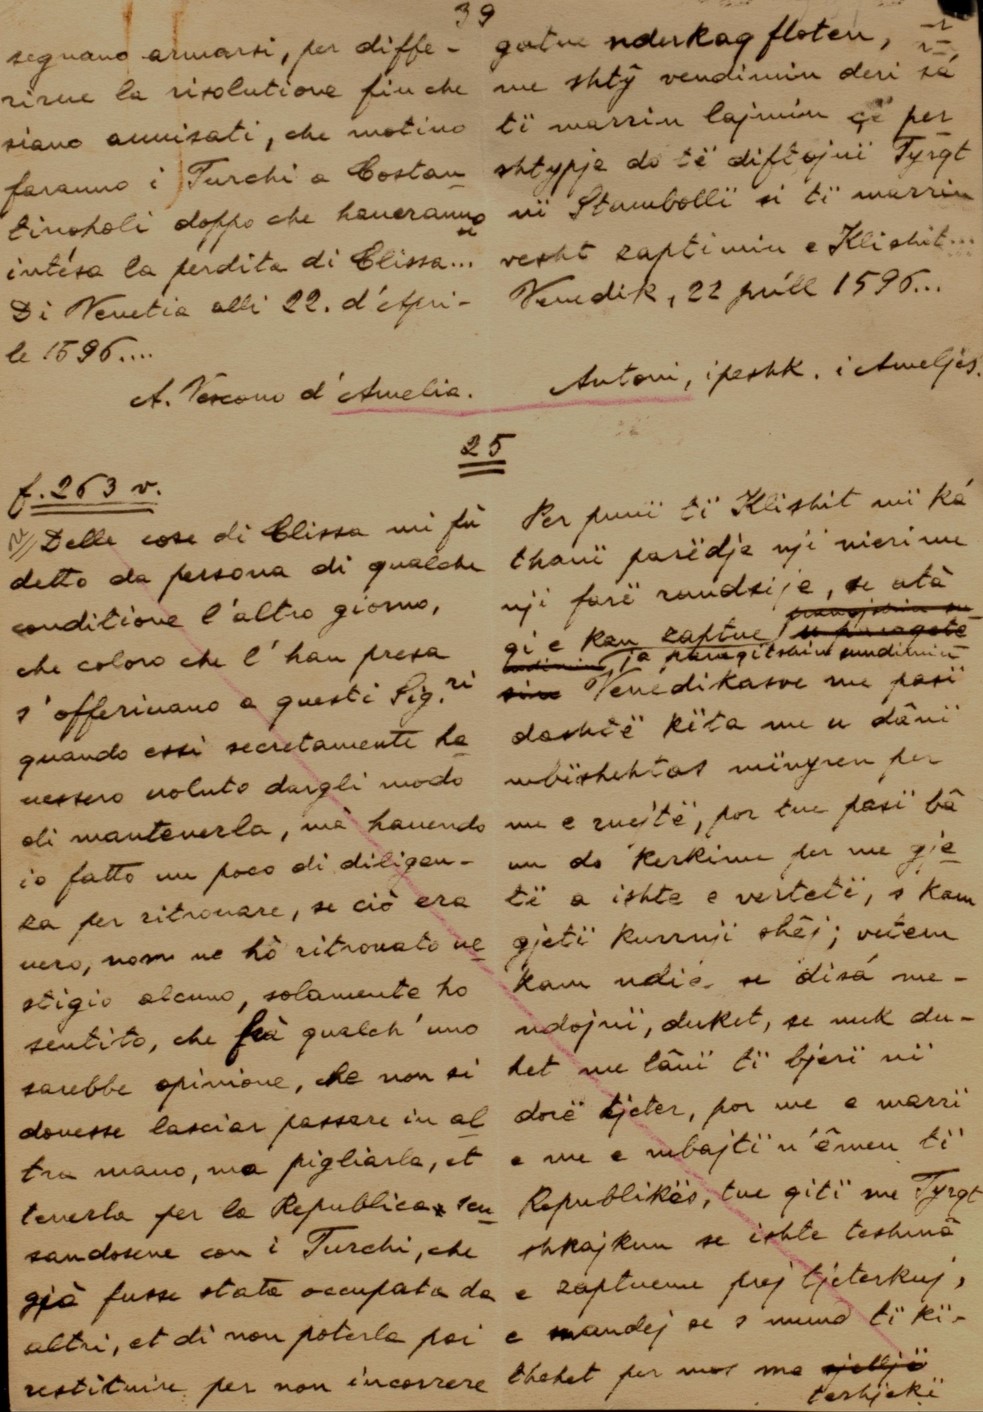 39
segnano armarsi, per diffe-
rirne la risolutione fin che
siano auuisati, che motiuo
faranno i Turchi a Costan
tinopoli doppo che haueranno
intésa la perdita di Clissa...
Di Venetia alli 22. d'Apri-
le 1596....
A. Vescouo d'Amelia.
gatue nderkaq floten,
me shtÿ vendimin deri sá
tï marrin lajmin qï per
shtypje do të diftojnï Tyrqt
nï Stambollï si tï marrin
vesht zaptimin e Klishit...
Venedik, 22 príll 1596...
Antoni, ipeshk. i Ameljes.
25
f. 263 v.
Delle cose di Clissa mi fù
detto da persona di qualche
conditione l'altro giorno,
che coloro che l'han presa
s'offeriuano a questi Sig.ri
quando essi secretamente ha
uessero uoluto dargli modo
di mantenerla, mà hauendo
io fatto un poco di diligen-
za per ritrouare, se ciò era
uero, non ne hò ritrouato ue
stigio alcuno, solamente ho
sentito, che frà qualch'uno
sarebbe opinione, che non si
douesse lasciar passare in al
tra mano, ma pigliarla, et
tenerla per la Republica scu
sandosene con i Turchi, che
già fusse stata occupata da
altri, et di non poterla poi
restituire per non incorrere
Per punï tï Klishit mï ká
thanï parëdje nji nieri me
nji farë randsije, se atà
qi e kan zaptue
ja paraqitshin sundimin
Venedikasve me pasï
dashtë kïta me u dânï
mbïshehtas mïnyren per
me e ruejtë, por tue pasï bâ
un do kerkime per me gje
tï a ishte e vertetï, s kam
gjetï kurrnji shêj; vetem
kam ndie se disá me-
ndojnï, duket, se nuk du-
het me lânï tï bjerï nï
dorë tjeter, por me e marrï
e me e mbajtï n'êmen tï
Republikës, tue qitï me Tyrqt
shkajkun se ishte teshmâ
e zaptueme prej tjeterkuj,
e mandej se s mund tï kï-
thehet per mos me sjelljë
terhjekï